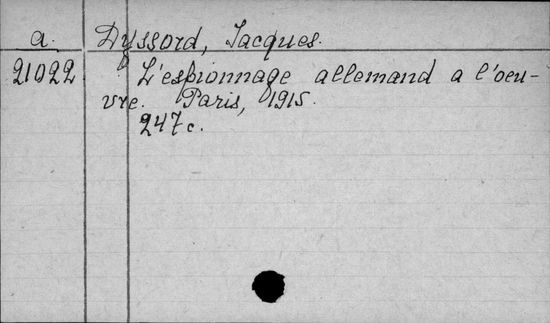 a. Dyssord, Jacques.
21022 L'espionnage allemand a l'oeu-
vre. Paris, 1915.
247 c.